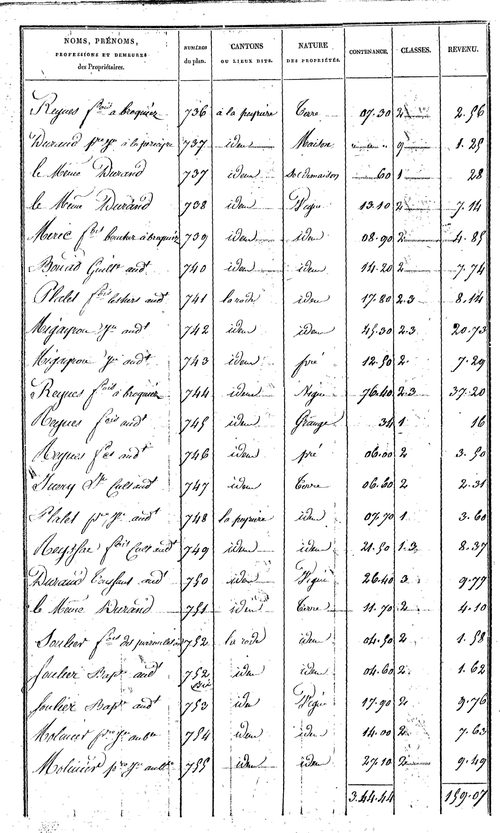 NOMS, PRÉNOMS, PROFESSIONS ET DEMEURES des Propriétaires. NUMÉROS du plan. CANTONS OU LIEUX DITS. NATURE DES PROPRIÉTÉS. CONTENANCE. CLASSES. REVENU.
Reynes fois à broquiez 736 à la peyrière Terre 07.30 2 2.56
Durand pre Jn 737 idem Maison " " " 9 1.25
le Même Durand 737 idem Sol de maison 60 1 28
le Même Durand 738 idem Vigne 13.10 2 7.14
fois à broquiez 739 idem idem 08.90 2 4.85
Guilm audt 740 idem idem 14.20 2 7.74
Blalet fois audt 741 la rode idem 17.80 2.3 8.14
Migayrou Jn audt 742 idem idem 45.30 2.3 20.73
Migayrou Jn audt 743 idem pré 12.50 2 7.29
Reynes fois à broquiez 744 idem Vigne 76.40 2.3 37.20
Reynes fois audt 745 idem Grange 34 1 16
Reynes fois audt 746 idem pré 06.00 2 3.50
Cult audt 747 idem Terre 06.60 2 2.31
Blalet pre Jn audt 748 la peyrière idem 07.70 1 3.60
fois Cult audt 749 idem idem 21.50 1.3 8.37
Durand Toussaint audt 750 idem Vigne 26.40 3 9.77
le Même Durand 751 idem Terre 11.70 2 4.10
Soulier fois 752 la rode idem 04.50 2 1.58
Soulier Bapt audt 752 Bis idem idem 04.60 2 1.62
Soulier Bapt audt 753 idem Vigne 17.90 2 9.76
Molinier pre Jn 754 idem idem 14.00 2 7.63
Molinier pre Jn 755 idem idem 27.10 2 9.49
3.44.44 159.07